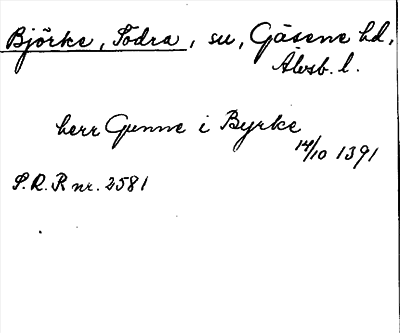 Björke, Södra, su, Gäsene hd,
Älvsb. l.
herr Gunne i Byrke
14/10 1391
S.R.R nr. 2581